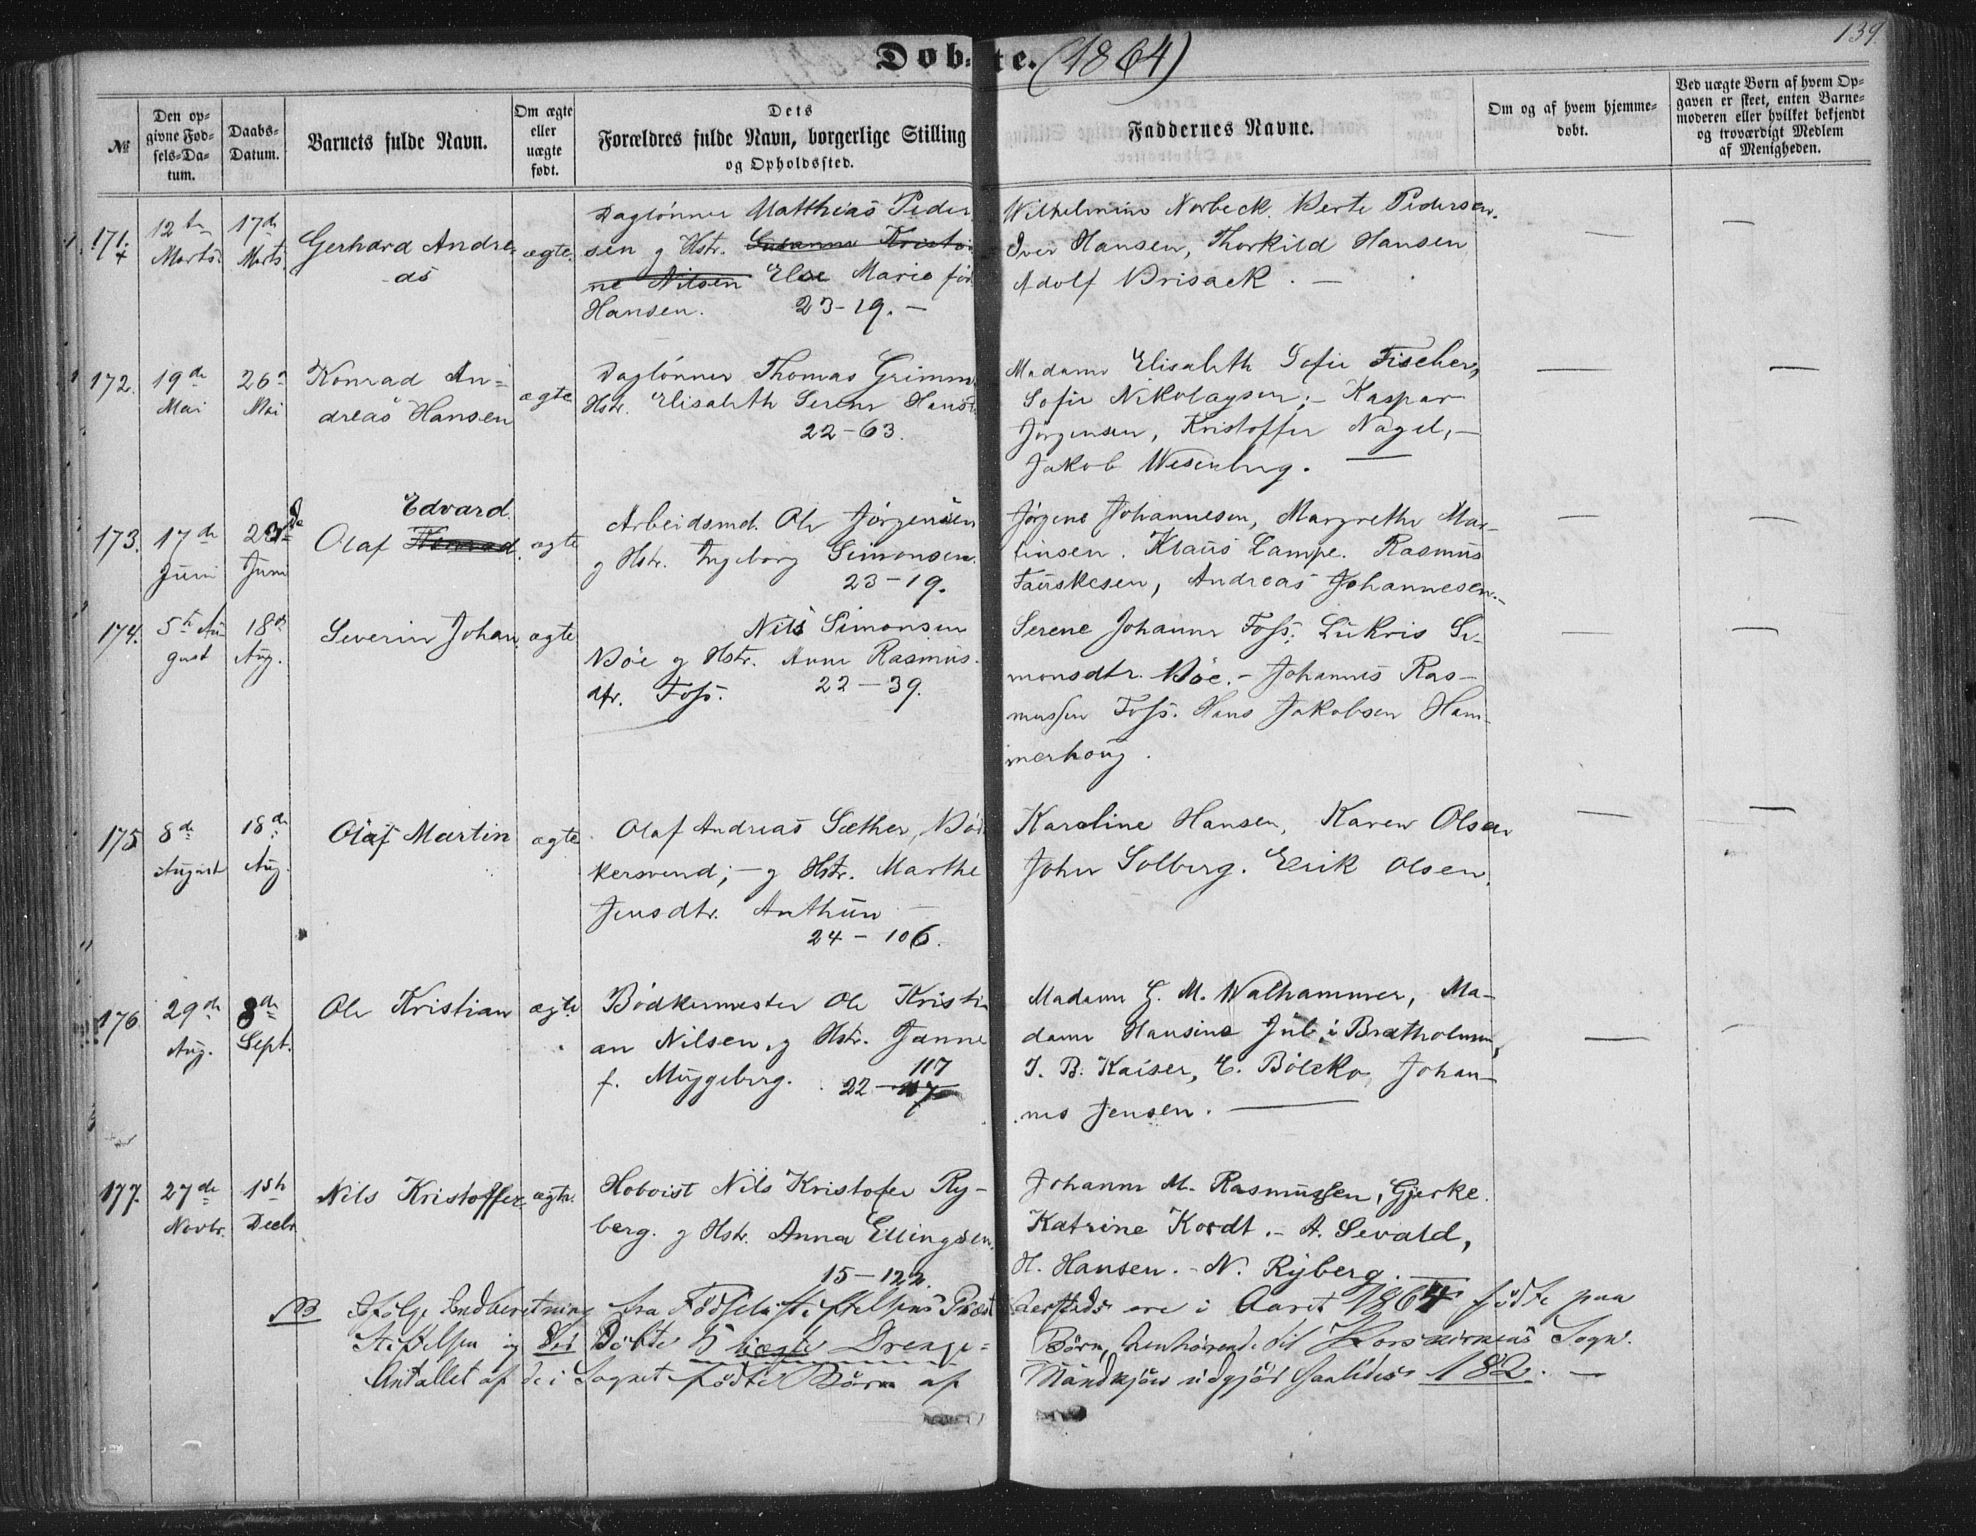 139.
Døbte. (1864)
№
Den opgivne Fødsels-Datum.
Daabs-Datum.
Barnets fulde Navn.
Om ægte eller uægte født.
Dets Forældres fulde Navn, borgerlige Stilling og Opholdssted.
Faddernes Navne.
Om og af hvem hjemmedøbt.
Ved uægte Børn af hvem Opgaven er skeet, enten Barnemoderen eller hvilket bekjendt og troværdigt Medlem af Menigheden.
171. 12te Marts. 17de Marts. Gerhard Andreas ægte.
Daglønner Matthias Peder
sen og Hstr. Susanna Kristi
ne Nilsen Else Marie fød
Hansen. 23-19. —
Wilhelmine Norbeck. Berte Pedersen.
Iver Hansen, Thorkild Hansen
Adolf Brisack. —
172. 19de Mai 26de Mai Konrad An=
dreas Hansen ægte
Daglønner Thomas Grimm
Hstr. Elisabeth Serene Hans
22-63.
Madame Elisabeth Sofie Fischer,
Sofie Nikolaysen, - Kaspar
Jørgensen, Kristoffer Nagel, —
Jakob Wesenberg. —
173. 17de Juni 23de Juni Olaf Edvard. ægte
Arbeidsmd. Ole Jørgensen
og Hstr. Ingeborg Simonsen.
23-19.
Jørgine Johannesen, Margrethe Mar-
tinsen. Klaus Lampe. Rasmus
Fauskesen, Andreas Johannesen.-
174. 5te August 18de Aug. Severin Johan ægte
Nils Simonsen
Bøe og Hstr. Anne Rasmus-
dtr. Foss. 22-39.
Serene Johanne Foss. Lukris Si-
monsdtr. Bøe. - Johannes Ras-
mussen Foss. Hans Jakobsen Ham-
merhoug.
175 8de August 18de Aug. Olaf Martin ægte
Olaf Andreas Sæther, Bød
kersvend, - og Hstr. Marthe
Jensdtr. Anthun —
24-106.
Karoline Hansen, Karen Olsen
John Solberg. Erik Olsen.
176. 29de Aug. 8de Sept. Ole Kristian ægte.
Bødkermester Ole Kristi
an Nilsen og Hstr. Janne
f. Müggeberg. 22- 117
Madame G. M. Walhammer, Ma-
dame Hansine Jul i Bratholmen,
J. B. Kaiser, C. Bölcko, Johan-
nes Jensen. —
177. 27de Novbr. 1ste Decbr. Nils Kristoffer ægte.
Hoboist Nils Kristofer Ry-
berg. og Hstr. Anna Ellingsen.
15-122.
Johanne M. Rasmussen, Gjerke.
Katrine Kordt. - A. Sevald,
H. Hansen. - N. Ryberg. —
NB Ifølge Indberetning fra Fødselsstiftelsens Præst ere i Aaret 1864 fødte paa
Stiftelsen og der Døbte 5 uægte Drenge= Børn, henhørende til Korskirkens Sogn.
Antallet af de i Sognet fødte Børn af Mandkjøn udgjør saaledes 182. —